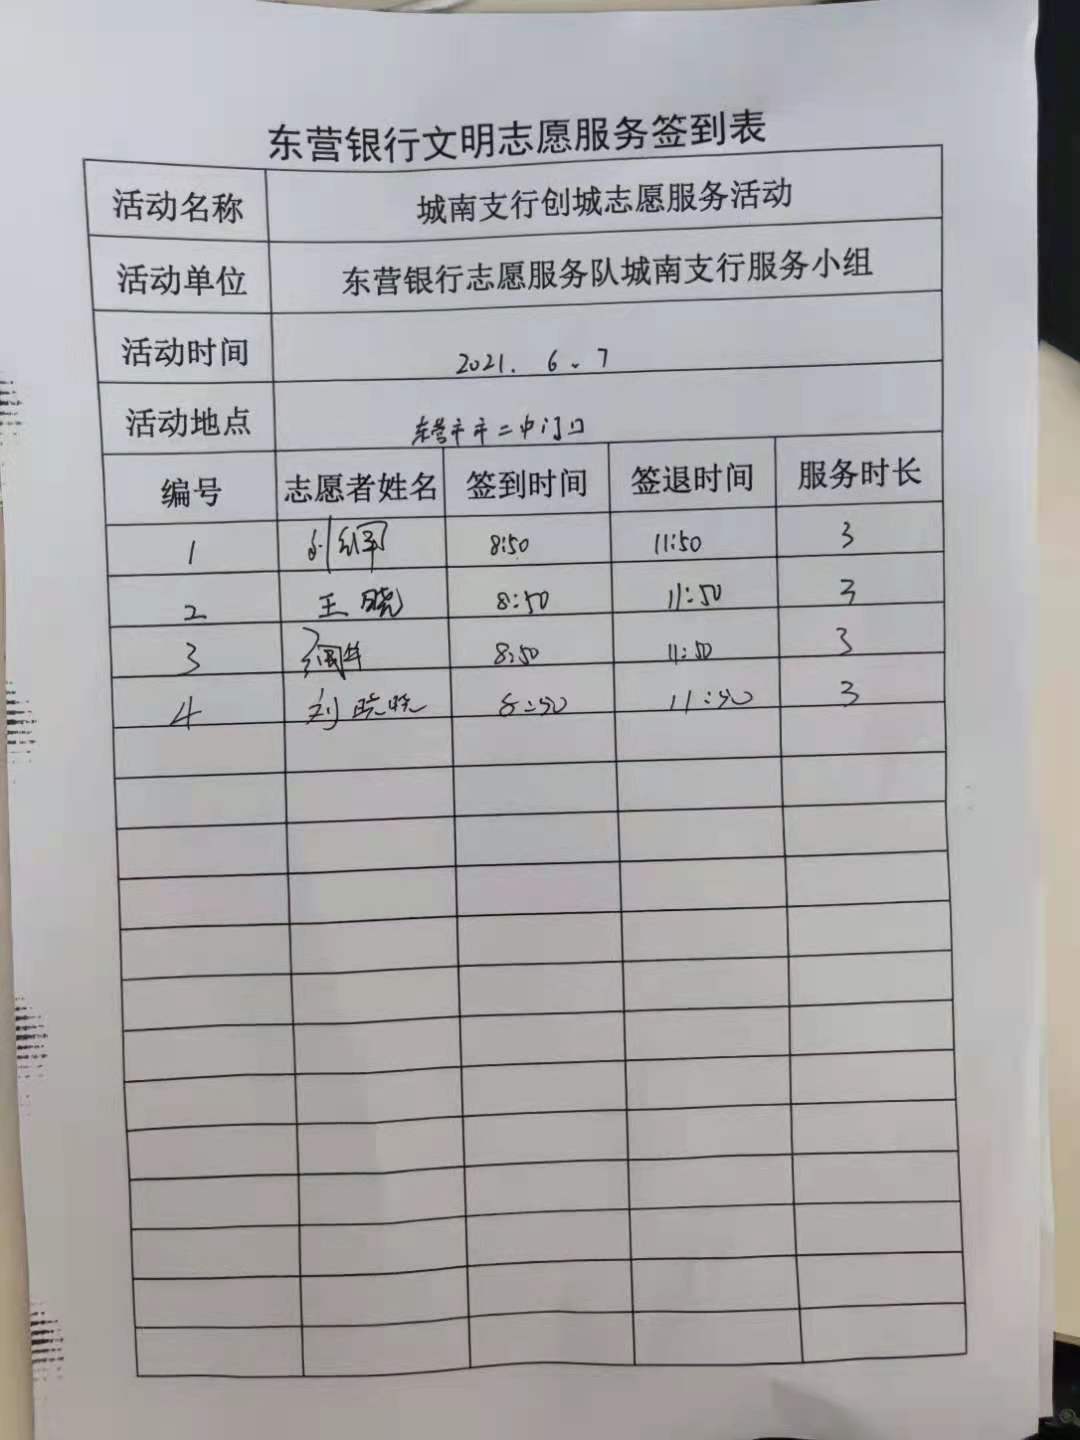 东营银行文明志愿服务签到表
活动名称 城南支行创城志愿服务活动
活动单位 东营银行志愿服务队城南支行服务小组
活动时间 2021. 6. 7
活动地点 东营市市二中门口
编号 志愿者姓名 签到时间 签退时间 服务时长
1 8:50 11:50 3
2 王晓 8:50 11:50 3
3 8:50 11:50 3
4 刘晓晓 8:50 11:50 3